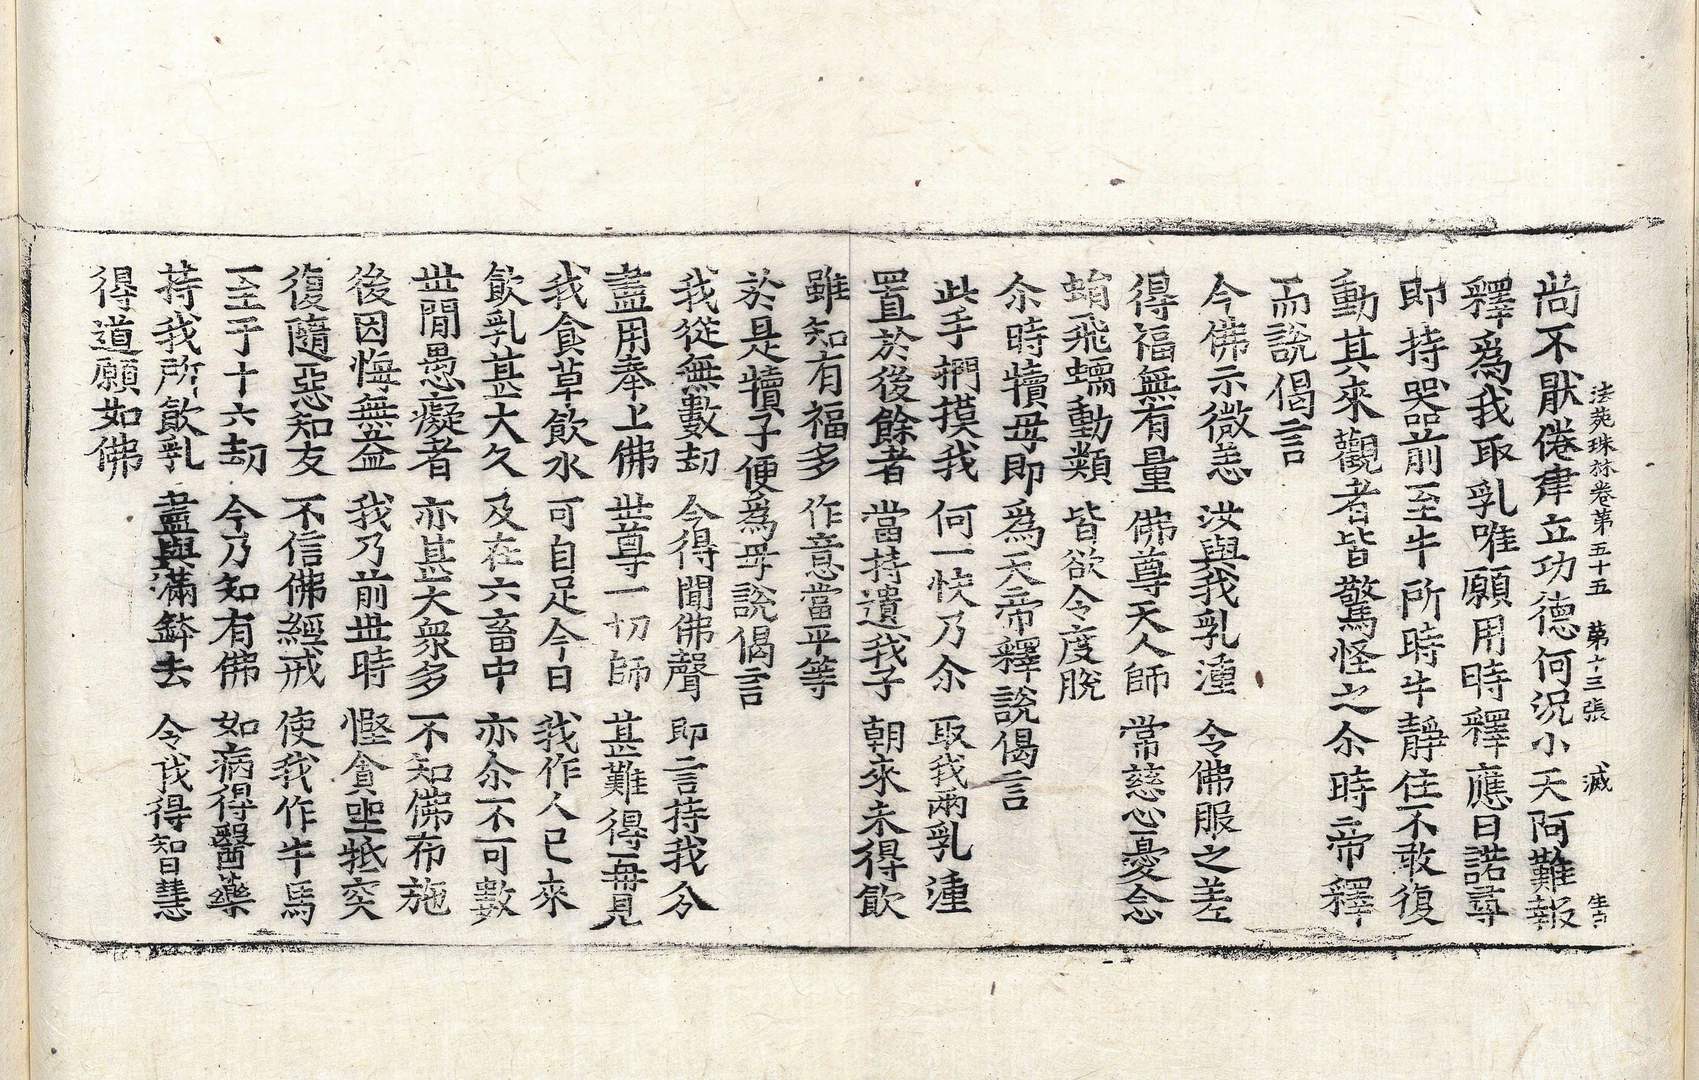 法苑珠林卷第五十五 第十三張 滅
尚不厭倦肄立功德何況小天阿難報
釋爲我取乳唯願用時釋應曰諾尋
即持器前至牛所時牛靜住不敢復
動其來觀者皆驚怪之尒時帝釋
而說偈言
今佛示微恙 汝與我乳湩 令佛服之差
得福無有量 佛尊天人師 常慈心憂念
蜎飛蠕動類 皆欲令度脫
尒時犢母即爲天帝釋說偈言
此手捫摸我 何一快乃尒 取我兩乳湩
置於後餘者 當持遺我子 朝來未得飮
雖知有福多 作意當平等
於是犢子便爲母說偈言
我從無數劫 今得聞佛聲 即言持我分
盡用奉上佛 世尊一切師 甚難得再見
我食草飮水 可自足今日 我作人已來
飮乳甚大久 及在六畜中 亦尒不可數
世閒愚癡者 亦甚大衆多 不知佛布施
後因悔無益 我乃前世時 慳貪坐抵突
復隨惡知友 不信佛經戒 使我作牛馬
至于十六劫 今乃知有佛 如病得醫藥
持我所飮乳 盡與滿鉢去 令我得智慧
得道願如佛